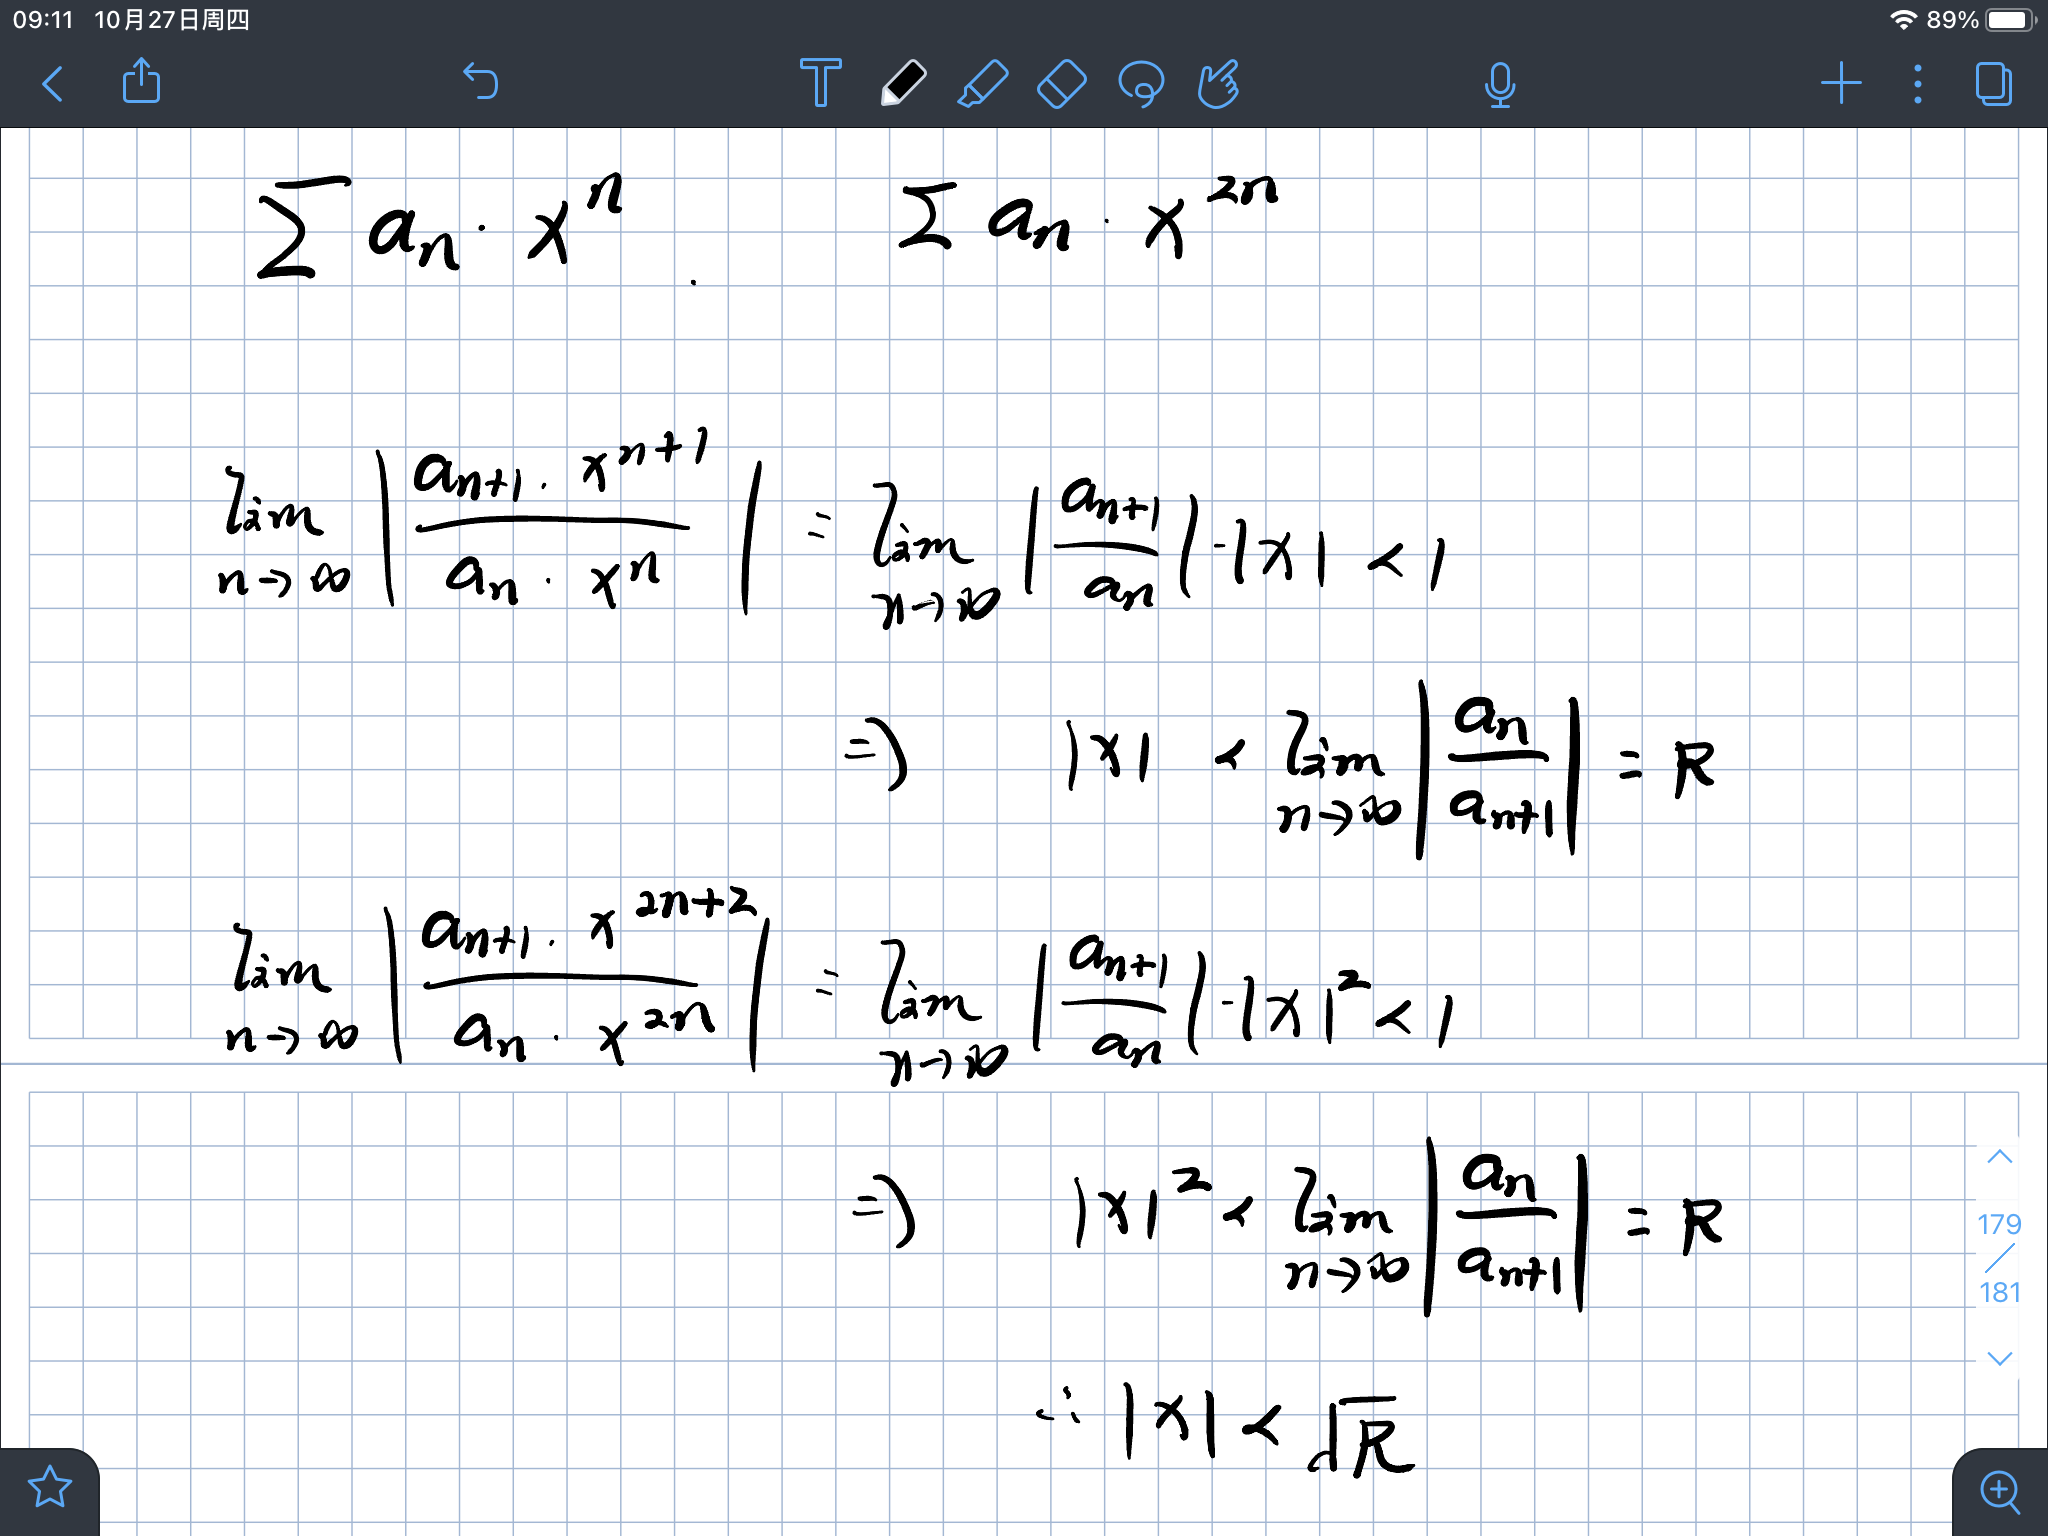 09:11 10月27日周四 89%
T
∑ aₙ · xⁿ . ∑ aₙ · x²ⁿ
lim n→∞ | aₙ₊₁ · xⁿ⁺¹ / aₙ · xⁿ | = lim n→∞ | aₙ₊₁ / aₙ | · |x| < 1
⇒ |x| < lim n→∞ | aₙ / aₙ₊₁ | = R
lim n→∞ | aₙ₊₁ · x²ⁿ⁺² / aₙ · x²ⁿ | = lim n→∞ | aₙ₊₁ / aₙ | · |x|² < 1
⇒ |x|² < lim n→∞ | aₙ / aₙ₊₁ | = R
179 / 181
∴ |x| < √R